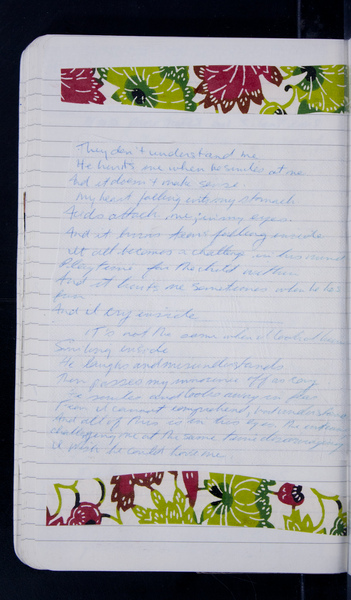 They don't understand me
He hurts me when he smiles at me
And it doesn't make sense
my heart falling into my stomach
Acids attack me in my eyes
And it burns tears falling inside
it all becomes a challenge in his mind
Playtime for the child within
And it hurts me sometimes when he has
fun
And it cry inside
it is not the same when I look at him
Smiling inside
He laughs and misunderstands
Then passes my innocence off as coy
He smiles and looks away in fun
Fear it cannot comprehend, but understand
And all of this is in his eyes
challenging me at the same time discouraging
I wish he could love me